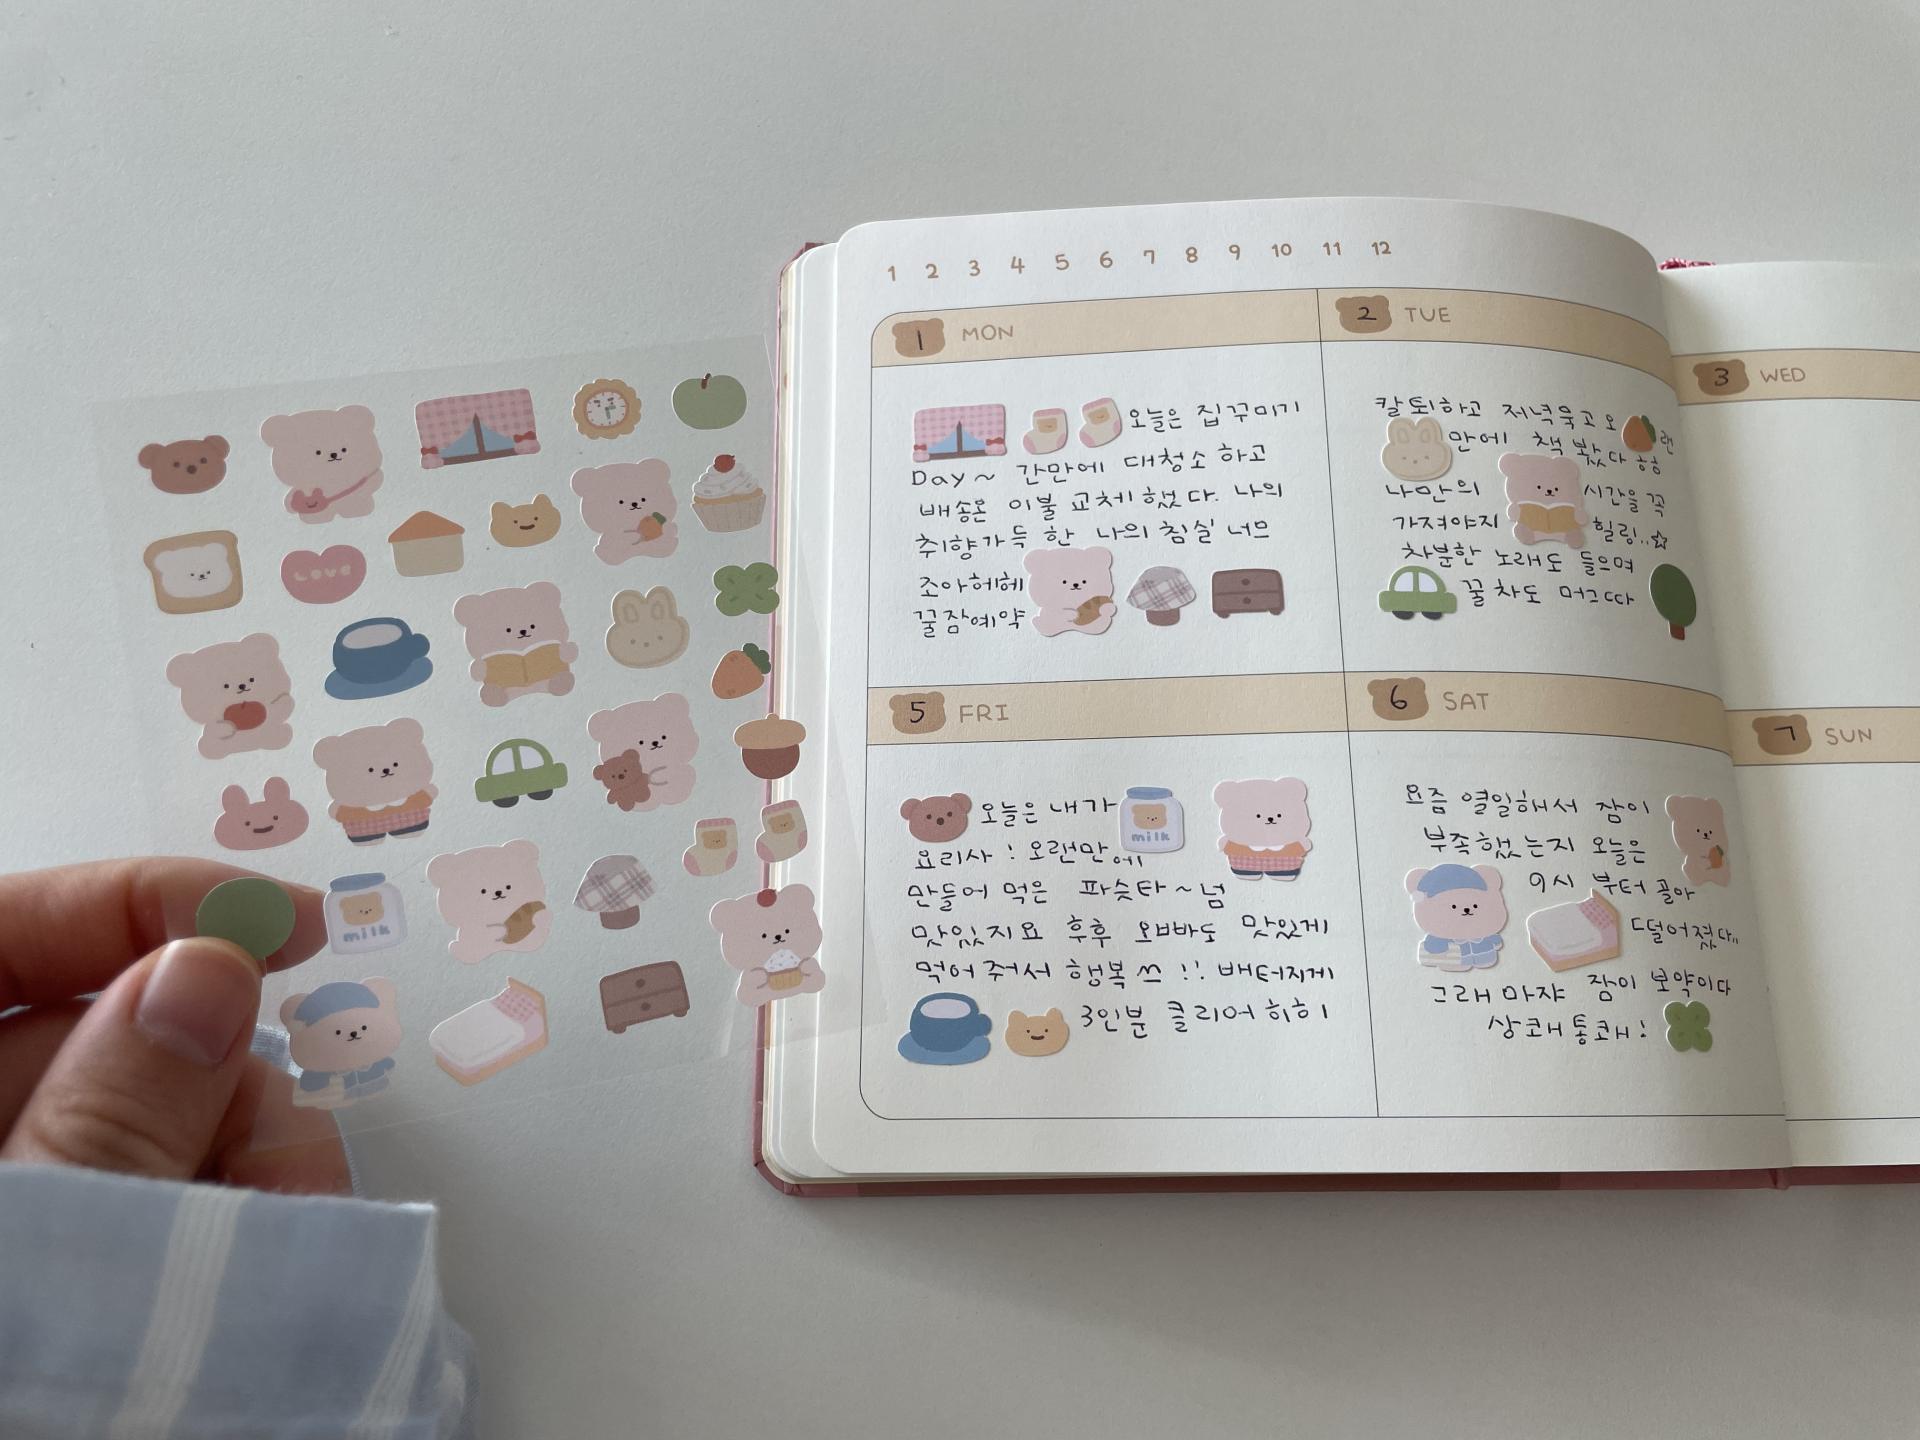 1 2 3 4 5 6 7 8 9 10 11 12
1 MON
오늘은 집꾸미기
Day~ 간만에 대청소 하고
배송온 이불 교체 했다. 나의
취향가득 한 나의 침실 너므
조아헤헤
꿀잠예약
2 TUE
칼퇴하고 저녁묵고 오랜
만에 책 봤다 하하
나만의 시간을 꼭
가져야지 힐링..☆
차분한 노래도 들으며
꿀차도 머그따
3 WED
5 FRI
오늘은 내가
요리사! 오랜만에
만들어 먹은 파슷타~넘
맛있지요 후후 오빠도 맛있게
먹어줘서 행복쓰!! 배터지게
3인분 클리어 히히
6 SAT
요즘 열일해서 잠이
부족했는지 오늘은
9시 부터 골아
떨어졌다..
그래 마쟈 잠이 보약이다
상쾌통쾌!
7 SUN
Love
milk
milk